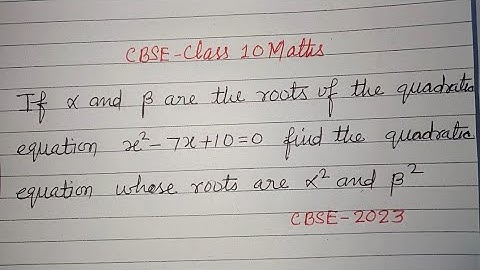 CBSE-Class 10 Maths
If α and β are the roots of the quadratic
equation x²-7x+10=0 find the quadratic
equation whose roots are α² and β²
CBSE-2023